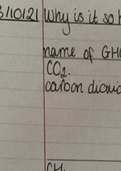 3/10/21 Why is it so h
name of GHG
CO2.
carbon dioxid
CH